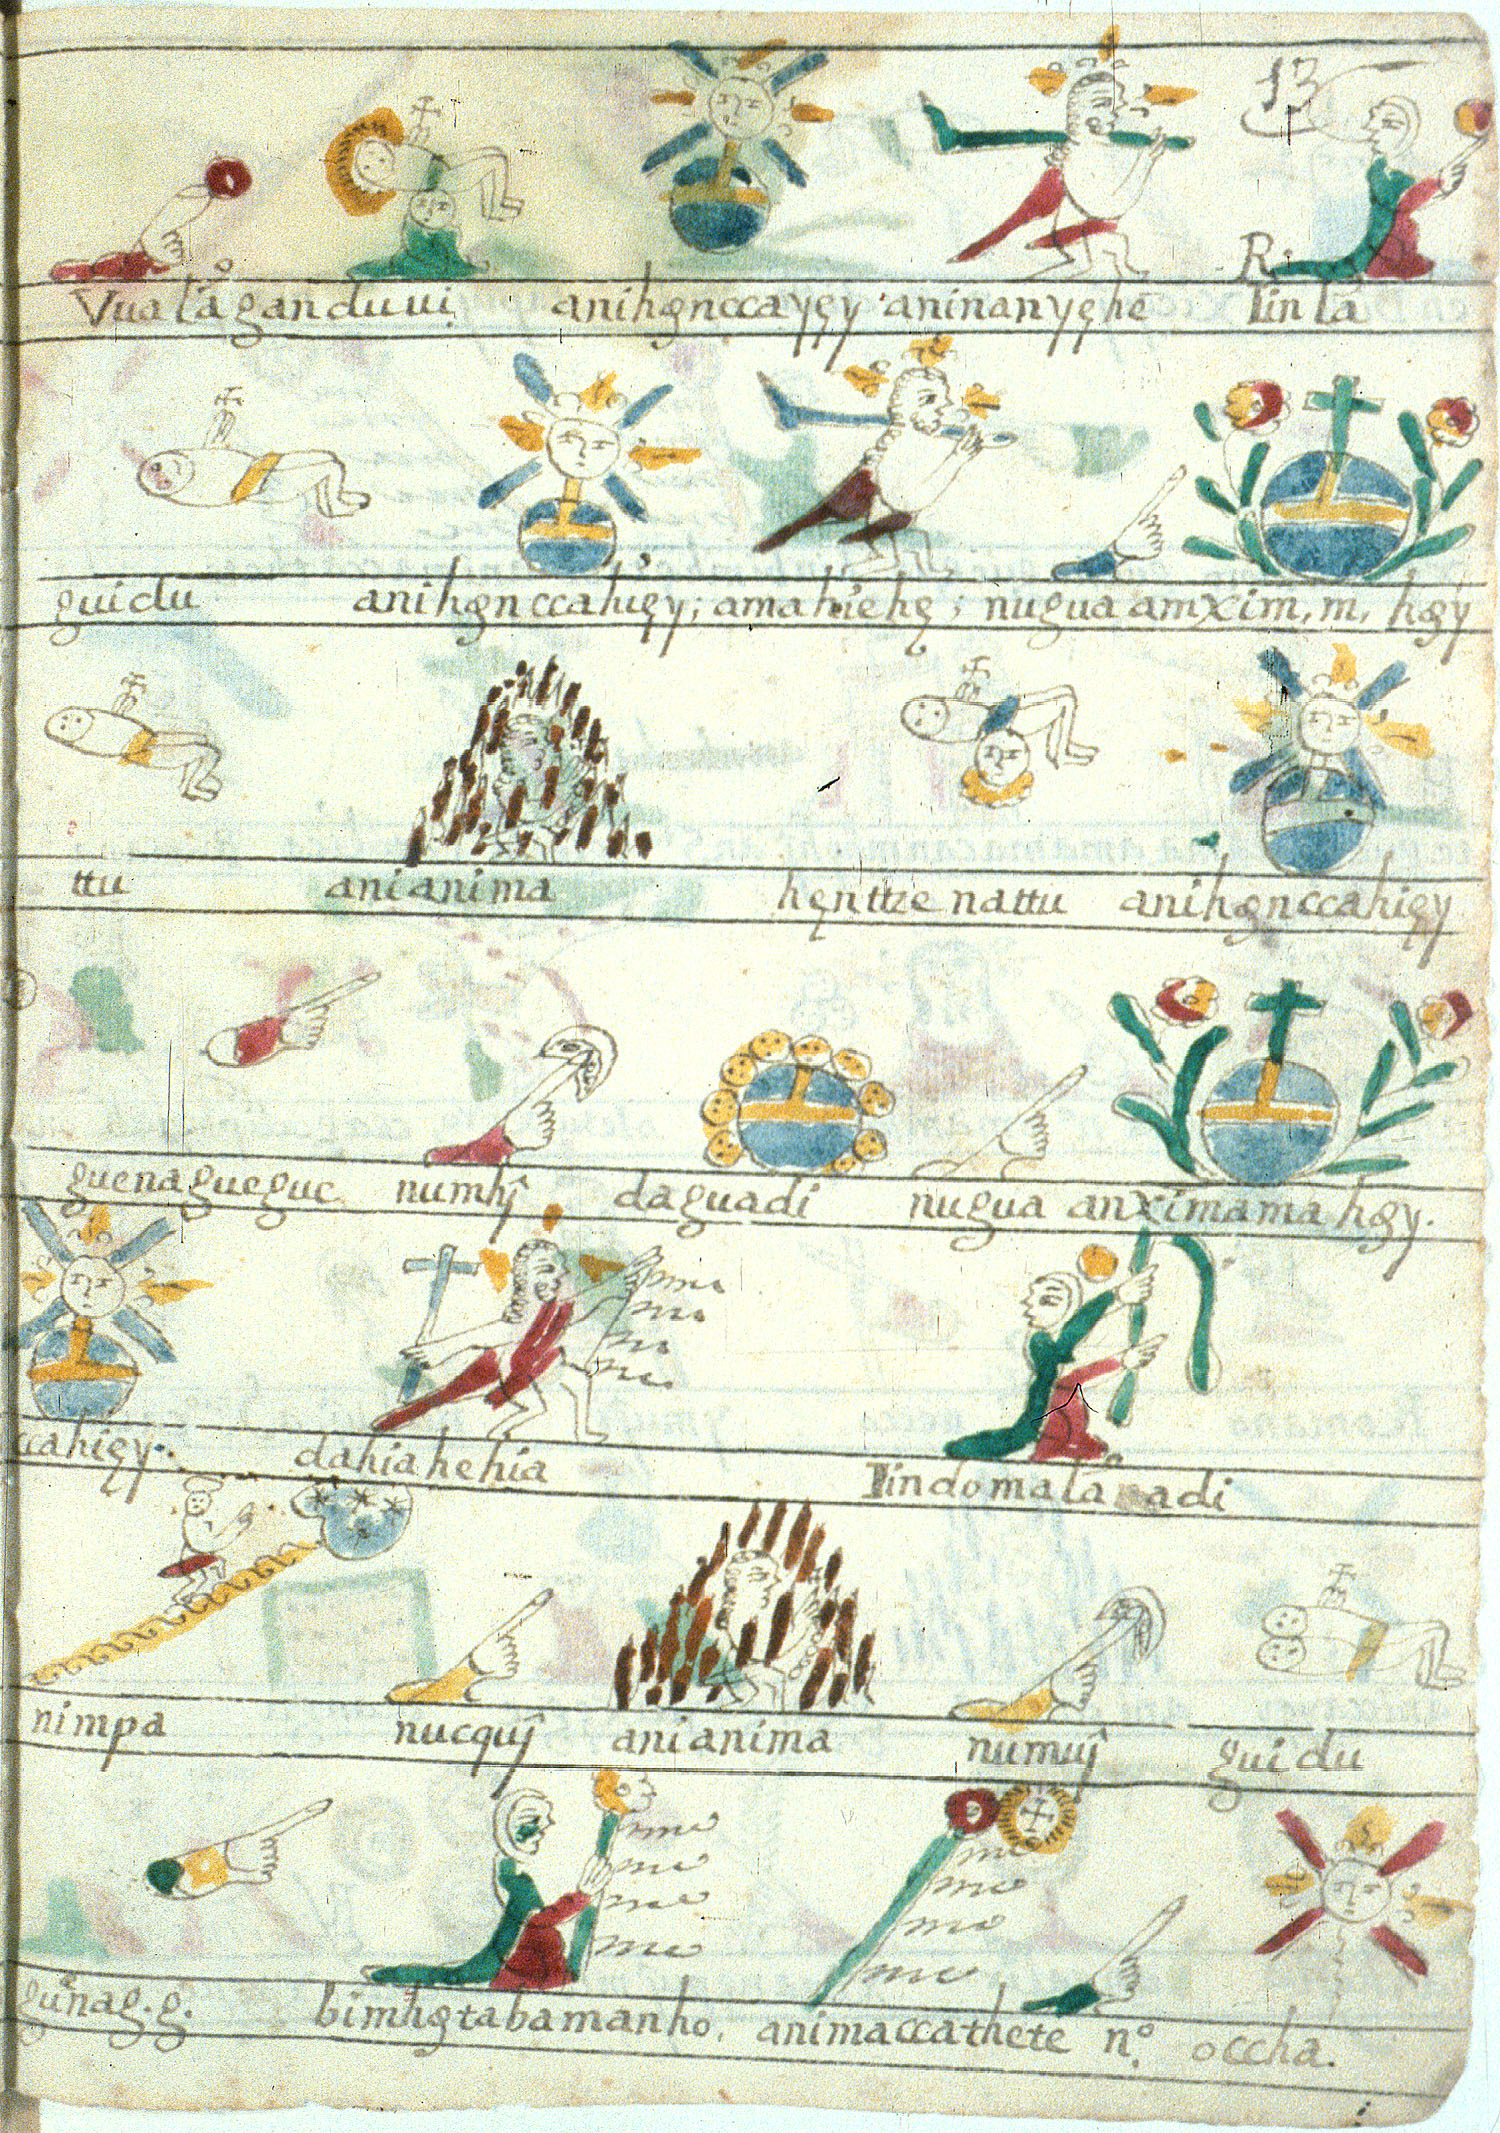 13
R.
Vualá ganduui anihęnccayęy aninanyęhe Iinlá
guidu anihęnccahięy; amahiehę; nugua amxim, m, hęy
ttu anianima hęnttze nattu anihęnccahięy
guenagueguc numhȷ̃ daguadi nugua anximama hęy.
ccahięy. dahiahehia Iindomalá adi
nimpa nucquȷ̃ anianima numuȷ̃ guidu
gu nag. g. bimhętabamanho. animaccathete n.º occha.